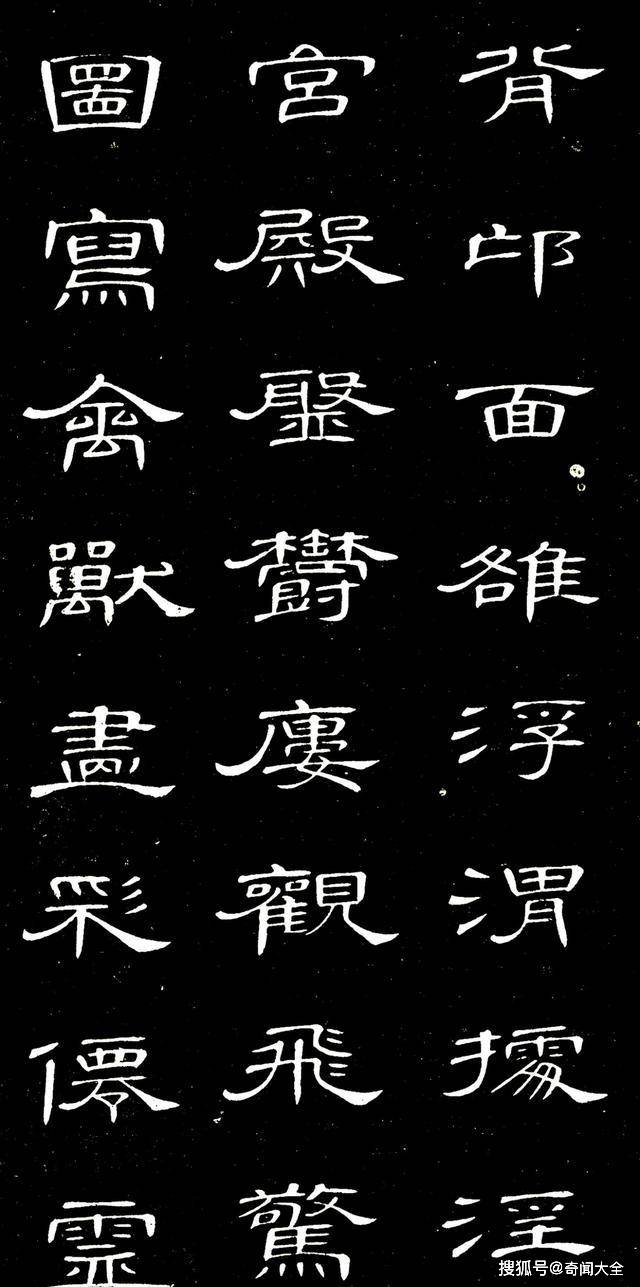 背邙面雒浮渭據涇
宮殿盤鬱廔觀飛驚
圖寫禽獸畫彩僊靈
搜狐号@奇闻大全